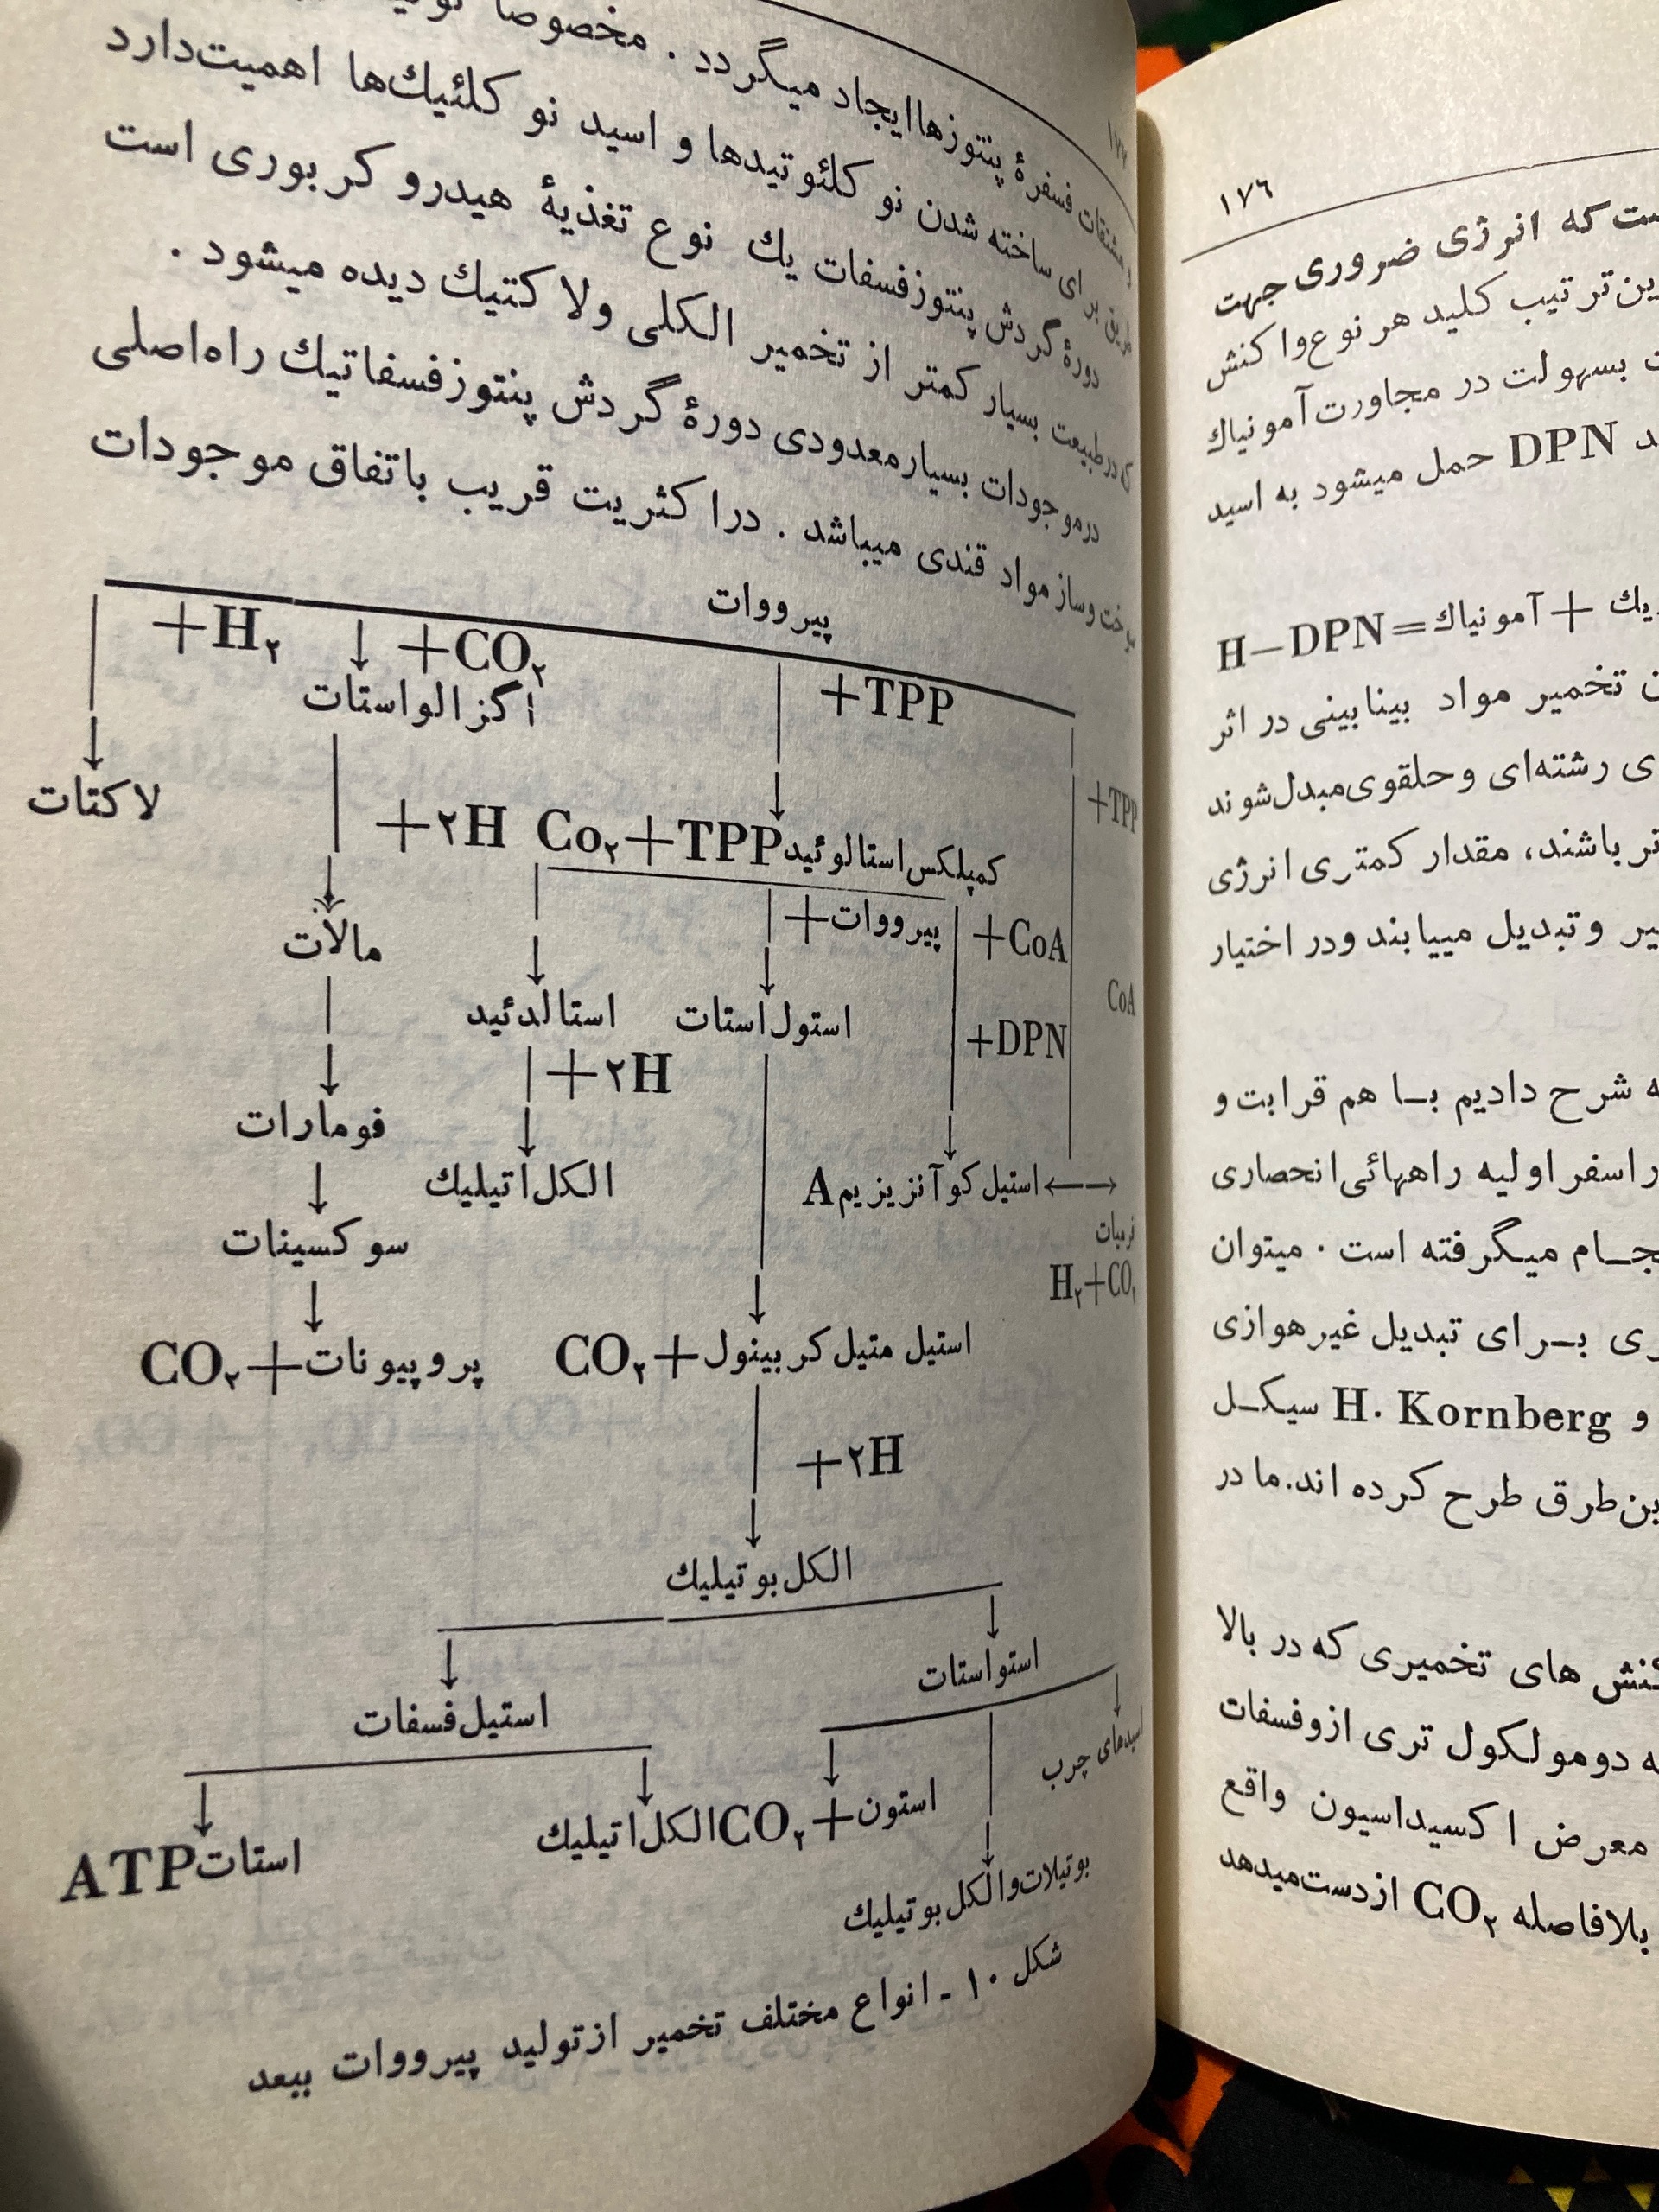 ١٧٦
ست که انرژی ضروری جهت
ین ترتیب کلید هر نوع واکنش
بسهولت در مجاورت آمونیاك
DPN حمل میشود به اسید
یك + آمونیاك = H—DPN
تخمیر مواد بینابینی در اثر
ی رشته‌ای وحلقوی مبدل شوند
تر باشند، مقدار کمتری انرژی
یر وتبدیل مییابند ودر اختیار
ه شرح دادیم بـا هم قرابت و
راسفر اولیه راههائی انحصاری
جـام میگرفته است . میتوان
ری بـرای تبدیل غیرهوازی
و H. Kornberg سیکـل
ین طرق طرح کرده اند. ما در
کنش های تخمیری که در بالا
ه دومولکول تری ازوفسفات
معرض اکسیداسیون واقع
بلافاصله CO٢ ازدست میدهد
١٧٧
مشتقات فسفرهٔ پنتوزها ایجاد میگردد . مخصوصاً
طریق برای ساخته شدن نو کلئوتیدها و اسید نو کلئیك‌ها اهمیت دارد
دورهٔ گردش پنتوزفسفات یك نوع تغذیهٔ هیدرو کربوری است
که درطبیعت بسیار کمتر از تخمیر الکلی ولاکتیك دیده میشود .
درموجودات بسیارمعدودی دورهٔ گردش پنتوزفسفاتیك راه اصلی
سوخت وساز مواد قندی میباشد . دراکثریت قریب باتفاق موجودات
پیرووات
+TPP
+CO٢
+H٢
اگزالواستات
لاکتات
+TPP
کمپلکس استالوئید Co٢+TPP
+٢H
+پیرووات
+CoA
CoA
مالات
استول استات
استالدئید
+DPN
+٢H
فومارات
الکل اتیلیك
استیل کوآنزیزیم A
فرمیات
H٢+CO٢
سوکسینات
استیل متیل کربینول+CO٢
پروپیونات+CO٢
+٢H
الکل بوتیلیك
استواستات
استیل فسفات
اسیدهای چرب
استون+CO٢
الکل اتیلیك
استات ATP
بوتیلات والکل بوتیلیك
شکل ١٠ - انواع مختلف تخمیر ازتولید پیرووات ببعد